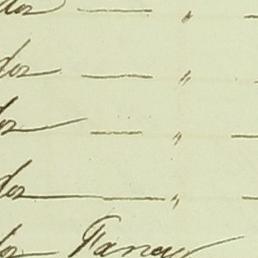 do — "
do — "
do — "
do — "
do Fancy